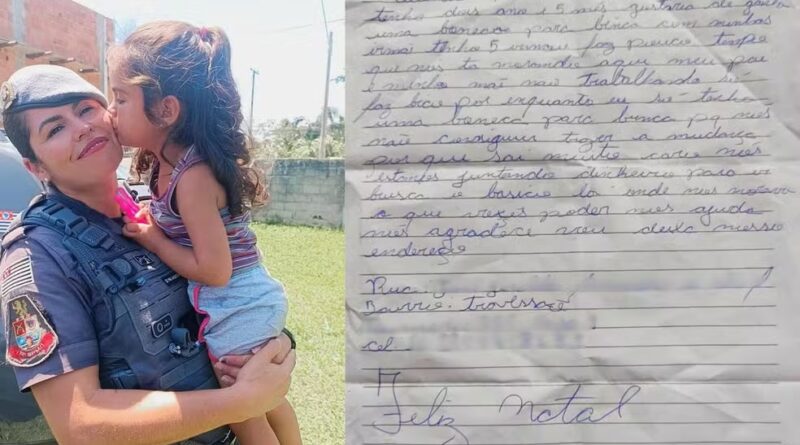 tenho dois ano e 5 mês gustaria de ganha
uma boneca para brinca com minhas
irmã tenho 5 irmão faz pouco tempo
que nos ta morando aqui meu pai
e minha mãe não trabalhando só
faz bico por enquanto eu só tenho
uma boneca para brinca pq nois
não consiguiu trazer a mudança
por que sai muito caro nois
estamos juntando dinheiro para ir
busca o basico la onde nois morava
o que voxes poder nois ajuda
nois agradece vou deixa nosso
endereço
Rua
Bairro: Travessão
cel
Feliz Natal